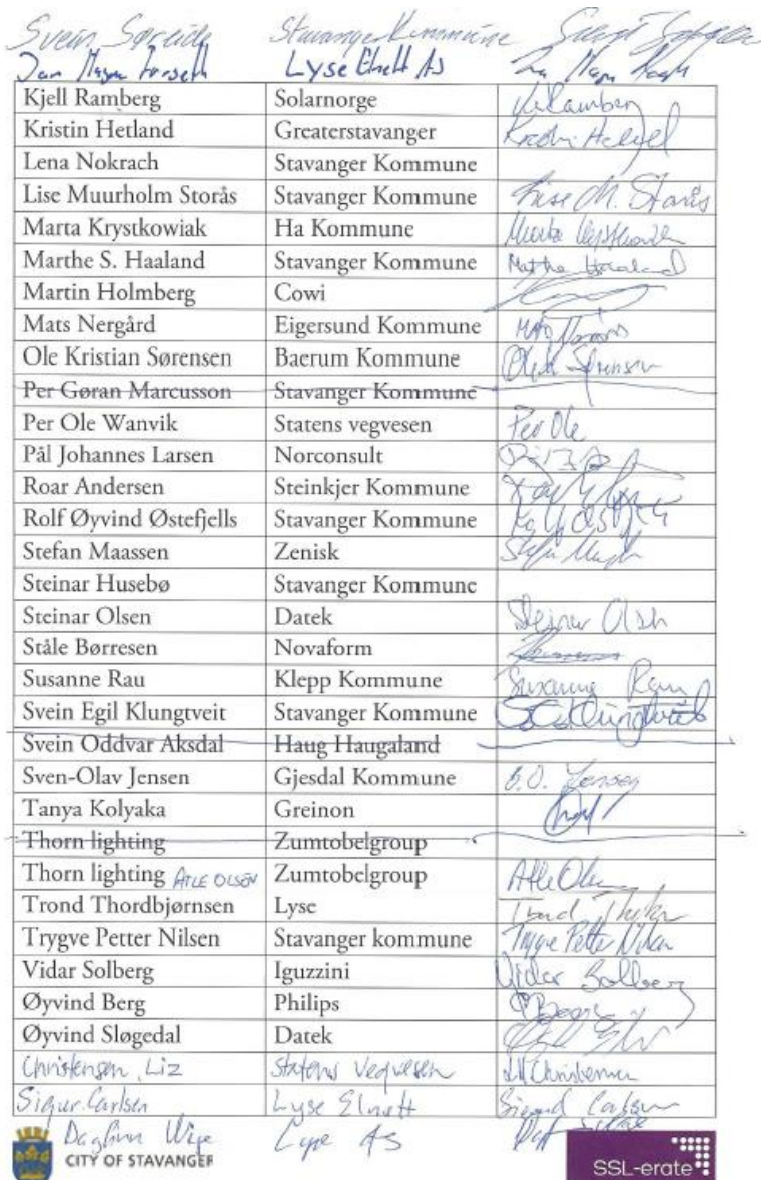 Svein Søreide Stavanger Kommune
Jan Magne Forseth Lyse Elnett AS
Kjell Ramberg Solarnorge
Kristin Hetland Greaterstavanger Kristin Hetland
Lena Nokrach Stavanger Kommune
Lise Muurholm Storås Stavanger Kommune Lise M. Storås
Marta Krystkowiak Ha Kommune Marta
Marthe S. Haaland Stavanger Kommune Marthe Haaland
Martin Holmberg Cowi
Mats Nergård Eigersund Kommune
Ole Kristian Sørensen Baerum Kommune
Per Gøran Marcusson Stavanger Kommune
Per Ole Wanvik Statens vegvesen Per Ole
Pål Johannes Larsen Norconsult
Roar Andersen Steinkjer Kommune
Rolf Øyvind Østefjells Stavanger Kommune
Stefan Maassen Zenisk
Steinar Husebø Stavanger Kommune
Steinar Olsen Datek Steinar Olsen
Ståle Børresen Novaform
Susanne Rau Klepp Kommune Susanne Rau
Svein Egil Klungtveit Stavanger Kommune
Svein Oddvar Aksdal Haug Haugaland
Sven-Olav Jensen Gjesdal Kommune S.O. Jensen
Tanya Kolyaka Greinon
Thorn lighting Zumtobelgroup
Thorn lighting ATLE OLSEN Zumtobelgroup Atle Olsen
Trond Thordbjørnsen Lyse Trond
Trygve Petter Nilsen Stavanger kommune Trygve Petter Nilsen
Vidar Solberg Iguzzini Vidar Solberg
Øyvind Berg Philips
Øyvind Sløgedal Datek
Christensen, Liz Statens Vegvesen
Sigur. Carlsen Lyse Elnett Sigurd Carlsen
Dagfinn Lyse AS
CITY OF STAVANGER
SSL-erate